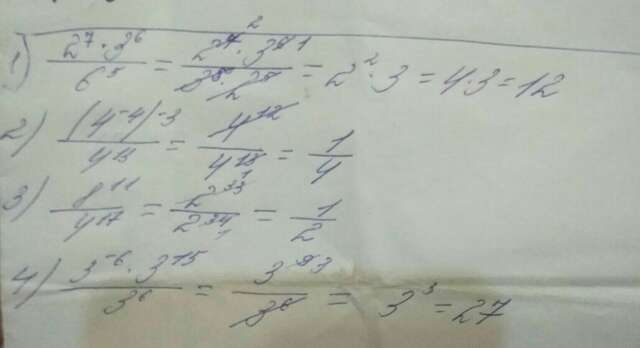 1) \frac{2^7 \cdot 3^6}{6^5} = \frac{2^{7 2} \cdot 3^{6 1}}{3^5 \cdot 2^5} = 2^2 \cdot 3 = 4 \cdot 3 = 12
2) \frac{(4^{-4})^{-3}}{4^{13}} = \frac{4^{12}}{4^{13 1}} = \frac{1}{4}
3) \frac{8^{11}}{4^{17}} = \frac{2^{33}}{2^{34 1}} = \frac{1}{2}
4) \frac{3^{-6} \cdot 3^{15}}{3^6} = \frac{3^{9 3}}{3^6} = 3^3 = 27